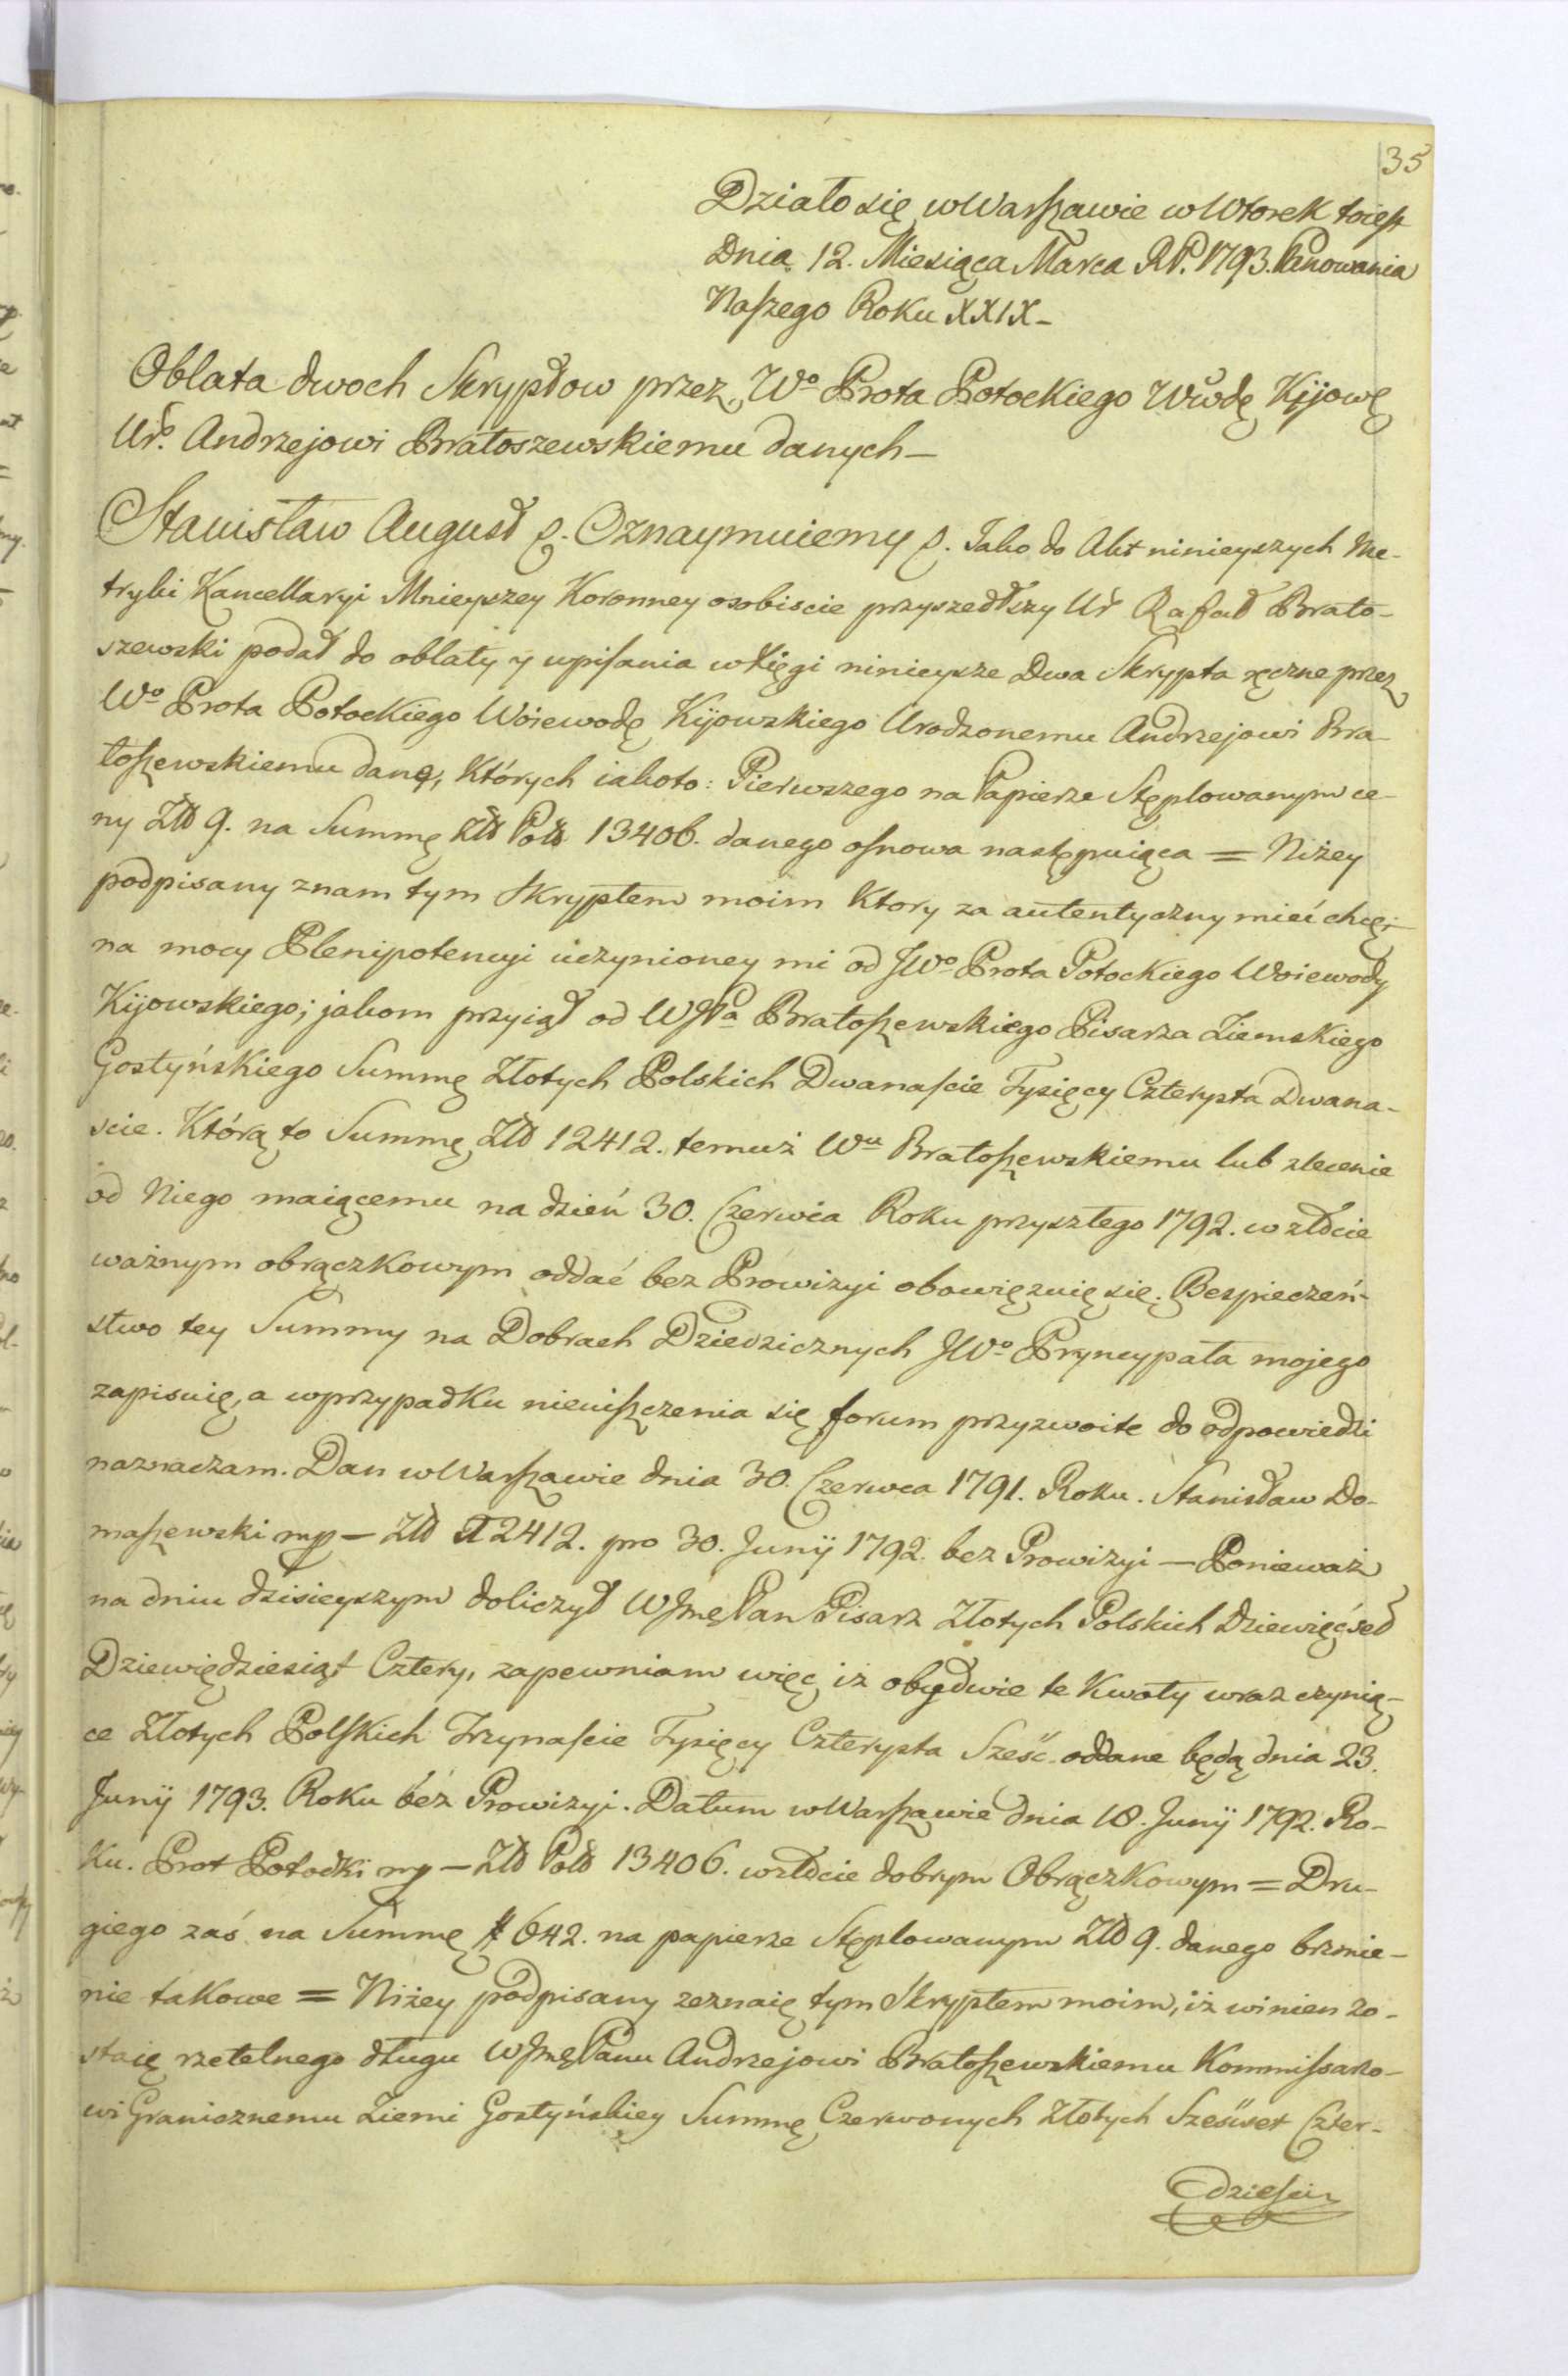 35
Działo się w Warszawie w Wtorek toiest
Dnia 12. Miesiąca Marca R.P. 1793. Panowania
Naszego Roku XXIX –
Oblata dwoch Skryptow przez Wº Prota Potockiego Wwdę Kijowº
Urº Andrzejowi Bratoszewskiemu danych –
Stanisław August &. Oznaymuiemy &. Jako do Akt ninieyszych Me-
tryki Kancellaryi Mnieyszey Koronney osobiscie przyszedłszy Ur Rafał Brato-
szewski podał do oblaty y wpisania w Xięgi ninieysze Dwa Skrypta ręczne przez
Wº Prota Potockiego Woiewodę Kijowskiego Urodzonemu Andrzejowi Bra-
toszewskiemu dane, Których iakoto: Pierwszego na Papierze Stęplowanym ce-
ny Złł 9. na Summę Złł Poll 13406. danego osnowa następuiąca = Niżey
podpisany znam tym Skryptem moim Ktory za autentyczny mieć chcę, i
na mocy Plenipotencyi uczynioney mi od JWº Prota Potockiego Woiewody
Kijowskiego; jakom przyiął od WJPª Bratoszewskiego Pisarza Ziemskiego
Gostyńskiego Summę Złotych Polskich Dwanaście Tysięcy Czterysta Dwana-
scie. Którą to Summę Złł 12412. temuż Wu Bratoszewskiemu lub zlecenie
od Niego maiącemu na dzień 30. Czerwca Roku przyszłego 1792. w złocie
ważnym obrączkowym oddać bez Prowizyi obowięzuię się. Bezpieczeń-
stwo tey Summy na Dobrach Dziedzicznych JWº Pryncypała mojego
zapisuię, a w przypadku nieuiszczenia się forum przyzwoite do odpowiedzi
naznaczam. Dan w Warszawie dnia 30. Czerwca 1791. Roku. Stanisław Do-
maszewski mp – Złł 12412. pro 30. Junij 1792. bez Prowizyi – Ponieważ
na dniu dzisieyszym doliczył WJmę Pan Pisarz Złotych Polskich Dziewięćset
Dziewiędziesiąt Cztery, zapewniam więc iż obydwie te Kwoty wraz czynią-
ce Złotych Polskich Trzynaście Tysięcy Czterysta Sześć oddane będą dnia 23.
Junij 1793. Roku bez Prowizyi. Datum w Warszawie dnia 18. Junij 1792. Ro-
ku. Prot Potocki mp – Złł Poll 13406. w złocie dobrym Obrączkowym = Dru-
giego zaś na Summę # 642. na papierze Stęplowanym Złł 9. danego brzmie-
nie takowe = Niżey podpisany zeznaię tym Skryptem moim, iż winien zo-
staię rzetelnego długu WJmę Panu Andrzejowi Bratoszewskiemu Kommissarzo-
wi Granicznemu Ziemi Gostyńskiey Summę Czerwonych Złotych Sześćset Czter-
dzieści